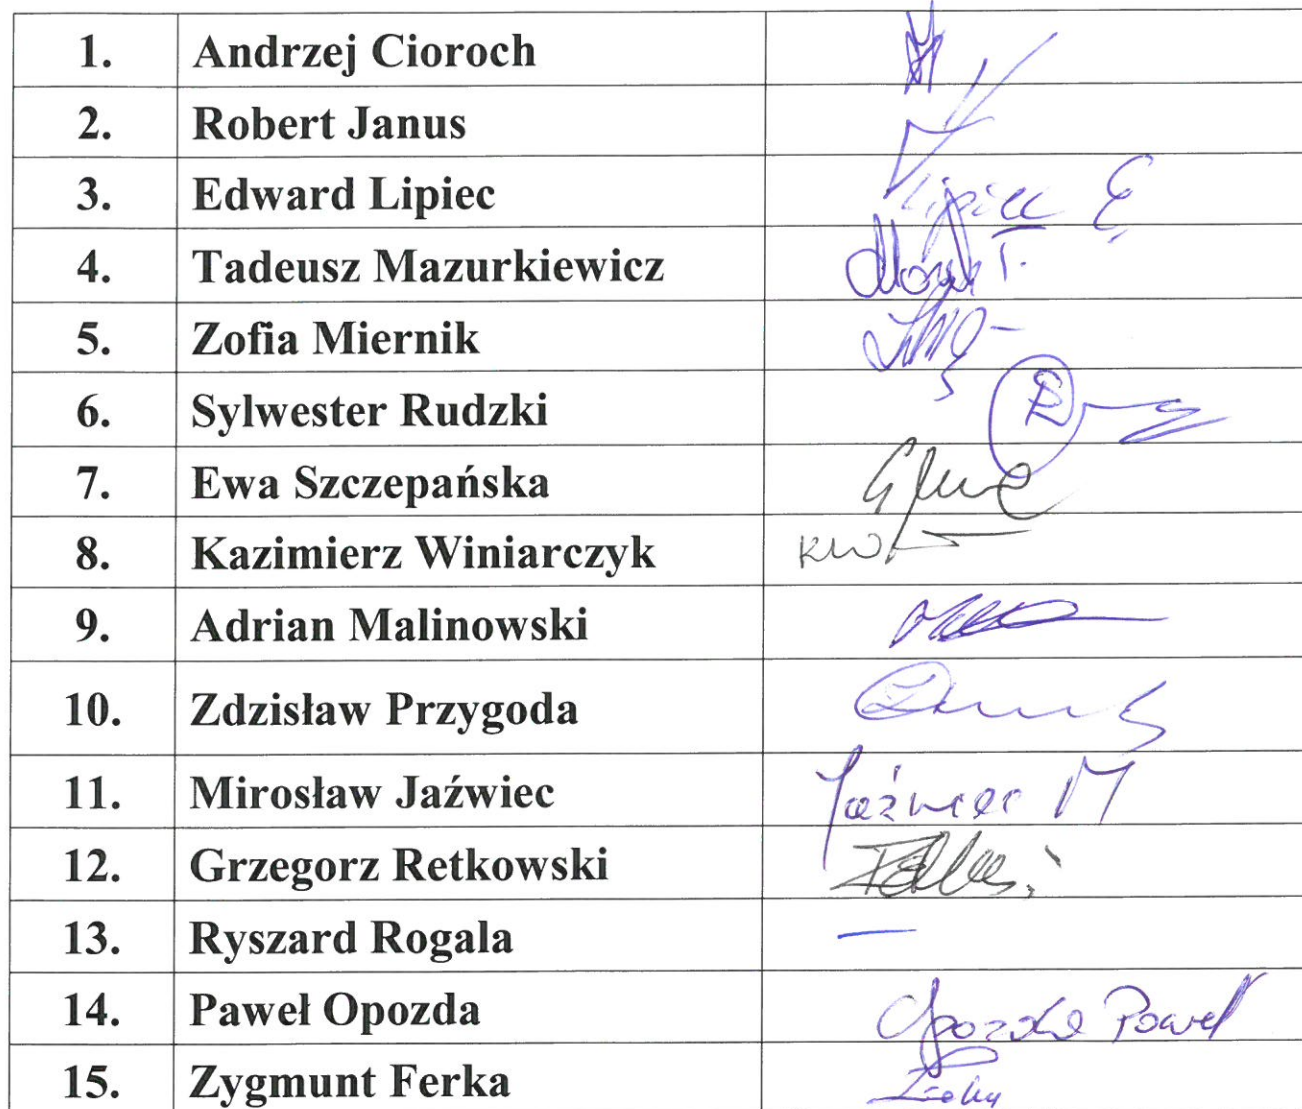 1. Andrzej Cioroch
2. Robert Janus
3. Edward Lipiec Lipiec E
4. Tadeusz Mazurkiewicz
5. Zofia Miernik
6. Sylwester Rudzki
7. Ewa Szczepańska
8. Kazimierz Winiarczyk
9. Adrian Malinowski
10. Zdzisław Przygoda
11. Mirosław Jaźwiec Jaźwiec M
12. Grzegorz Retkowski
13. Ryszard Rogala —
14. Paweł Opozda Opozda Paweł
15. Zygmunt Ferka